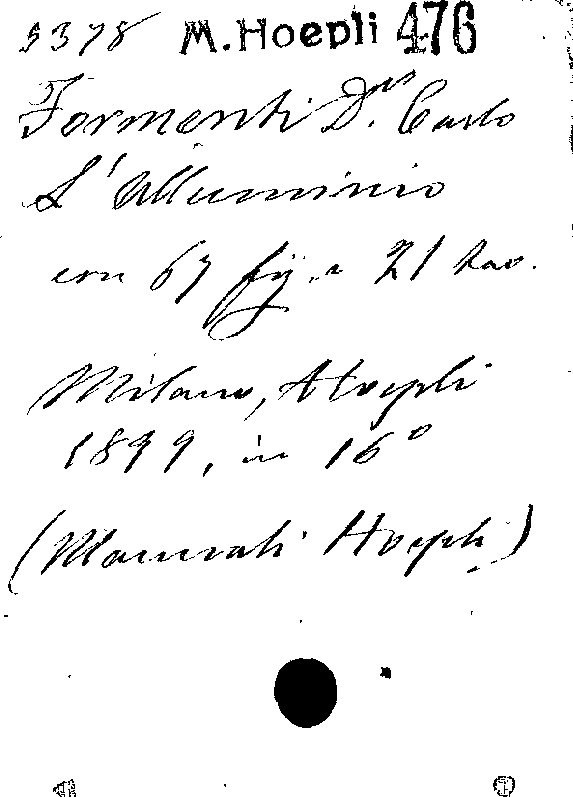 5378 M. Hoepli 476
Formenti D.r Carlo
L'Alluminio
con 67 fig. e 21 tav.
Milano, Hoepli
1899, in 16º
(Manuali Hoepli)